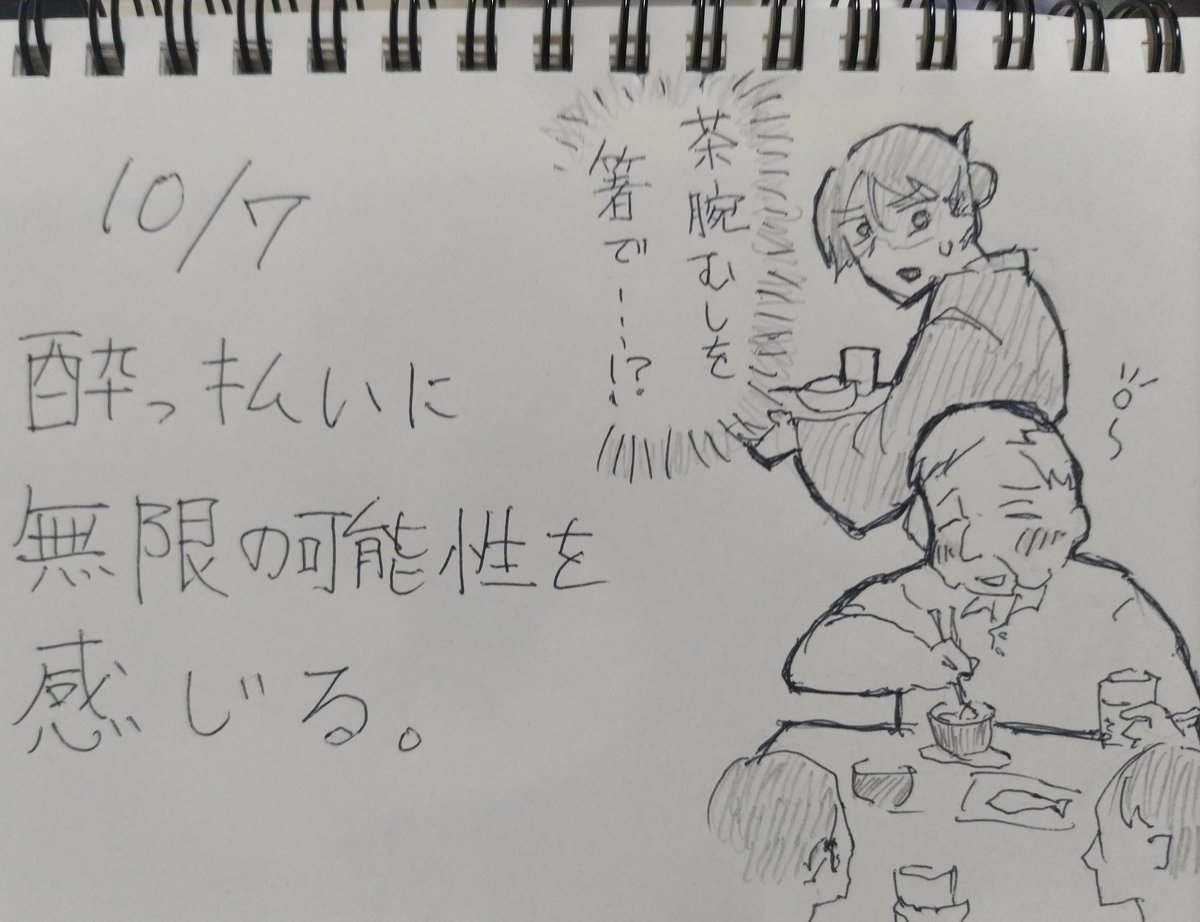 10/7
酔っ払いに
無限の可能性を
感じる。
茶腕むしを
箸で……!?